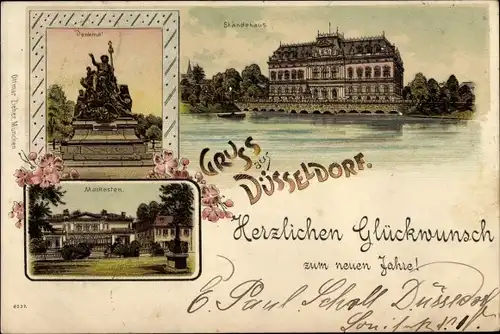 Denkmal
Ständehaus
Ottmar Zieher, München
GRUSS
aus
DÜSSELDORF.
Malkasten.
Herzlichen Glückwunsch
zum neuen Jahre!
E. Paul Scholl Düsseldorf